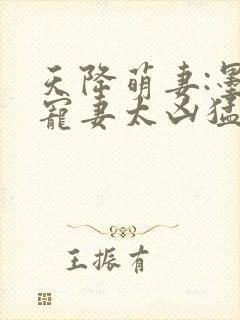 天降萌妻:墨
宠妻太凶猛
王振有